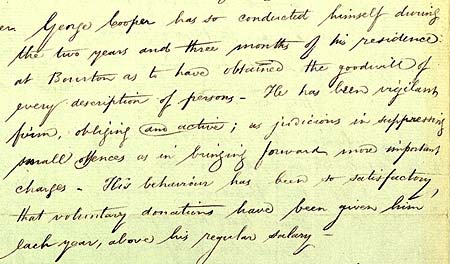 George Cooper has so conducted himself during
the two years and three months of his residence
at Bourton as to have obtained the goodwill of
every description of persons - He has been vigilant
firm, obliging and active; as judicious in suppressing
small offences as in bringing forward more important
charges - His behaviour has been so satisfactory,
that voluntary donations have been given him
each year, above his regular salary -